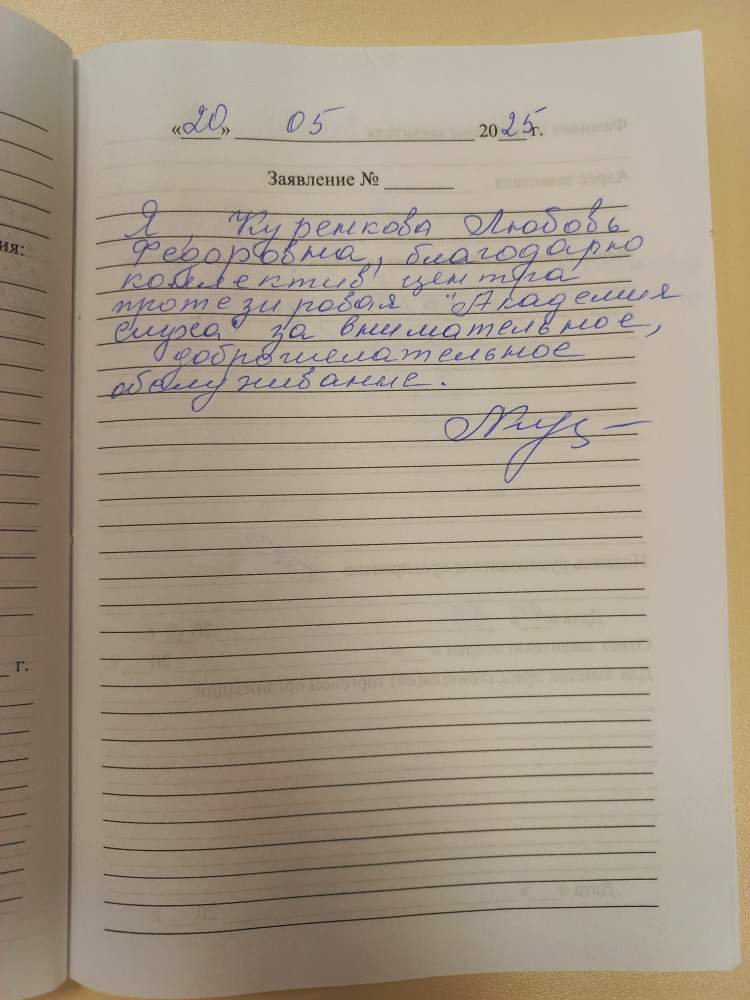 «20» 05 2025г.
Заявление №
Я, Куренкова Любовь
Федоровна, благодарю
коллектив центра
протезировая "Академия
слуха" за внимательное,
доброжелательное
обслуживание.
ия:
г.